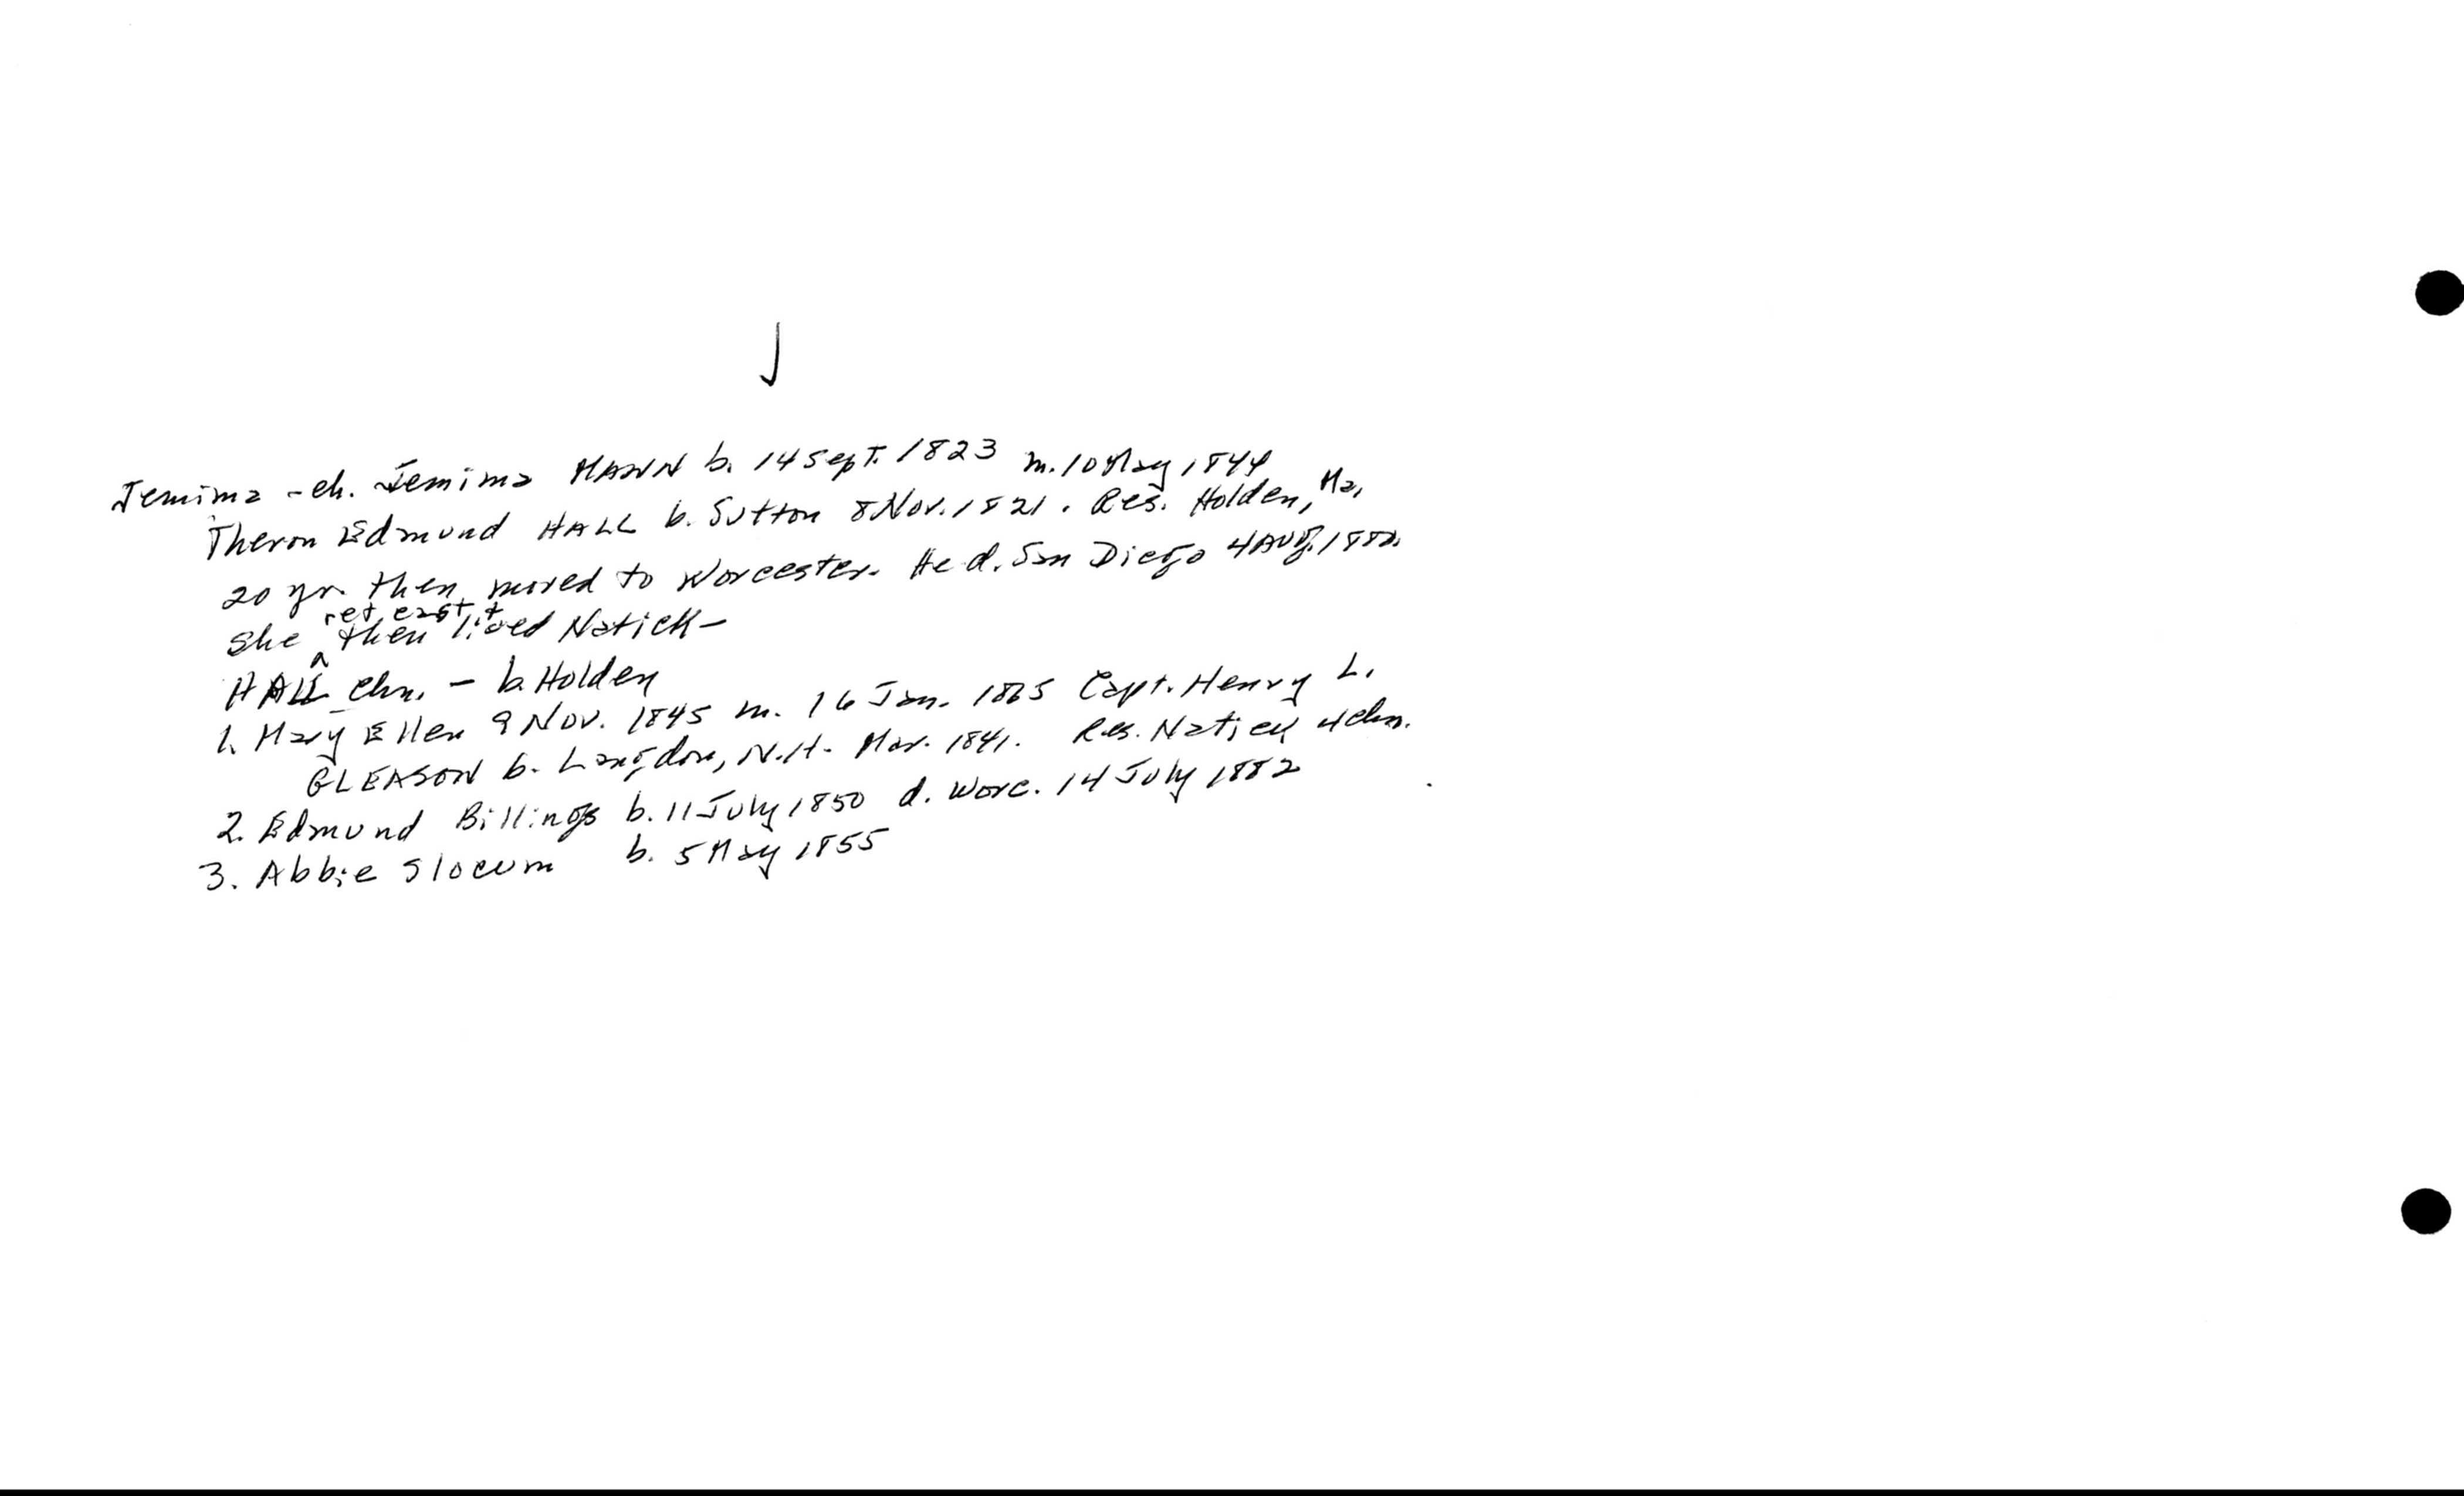 Jemima - ch. Jemima MANN b. 14 Sept. 1823 m. 10 May 1844
Theron Edmund HALL b. Sutton 8 Nov. 1821. Res. Holden, Ma.
20 yr. then moved to Worcester. He d. San Diego 4 Aug.
She ^ ret east & then lived Natick -
HALL chn. - b. Holden
1. Mary Ellen 9 Nov. 1845 m. 16 Jan. 1865 Capt. Henry L.
GLEASON b. Langdon, N.H. Mar. 1841. Res. Natick 4 chn.
2. Edmund Billings b. 11 July 1850 d. Worc. 14 July 1882
3. Abbie Slocum b. 5 May 1855